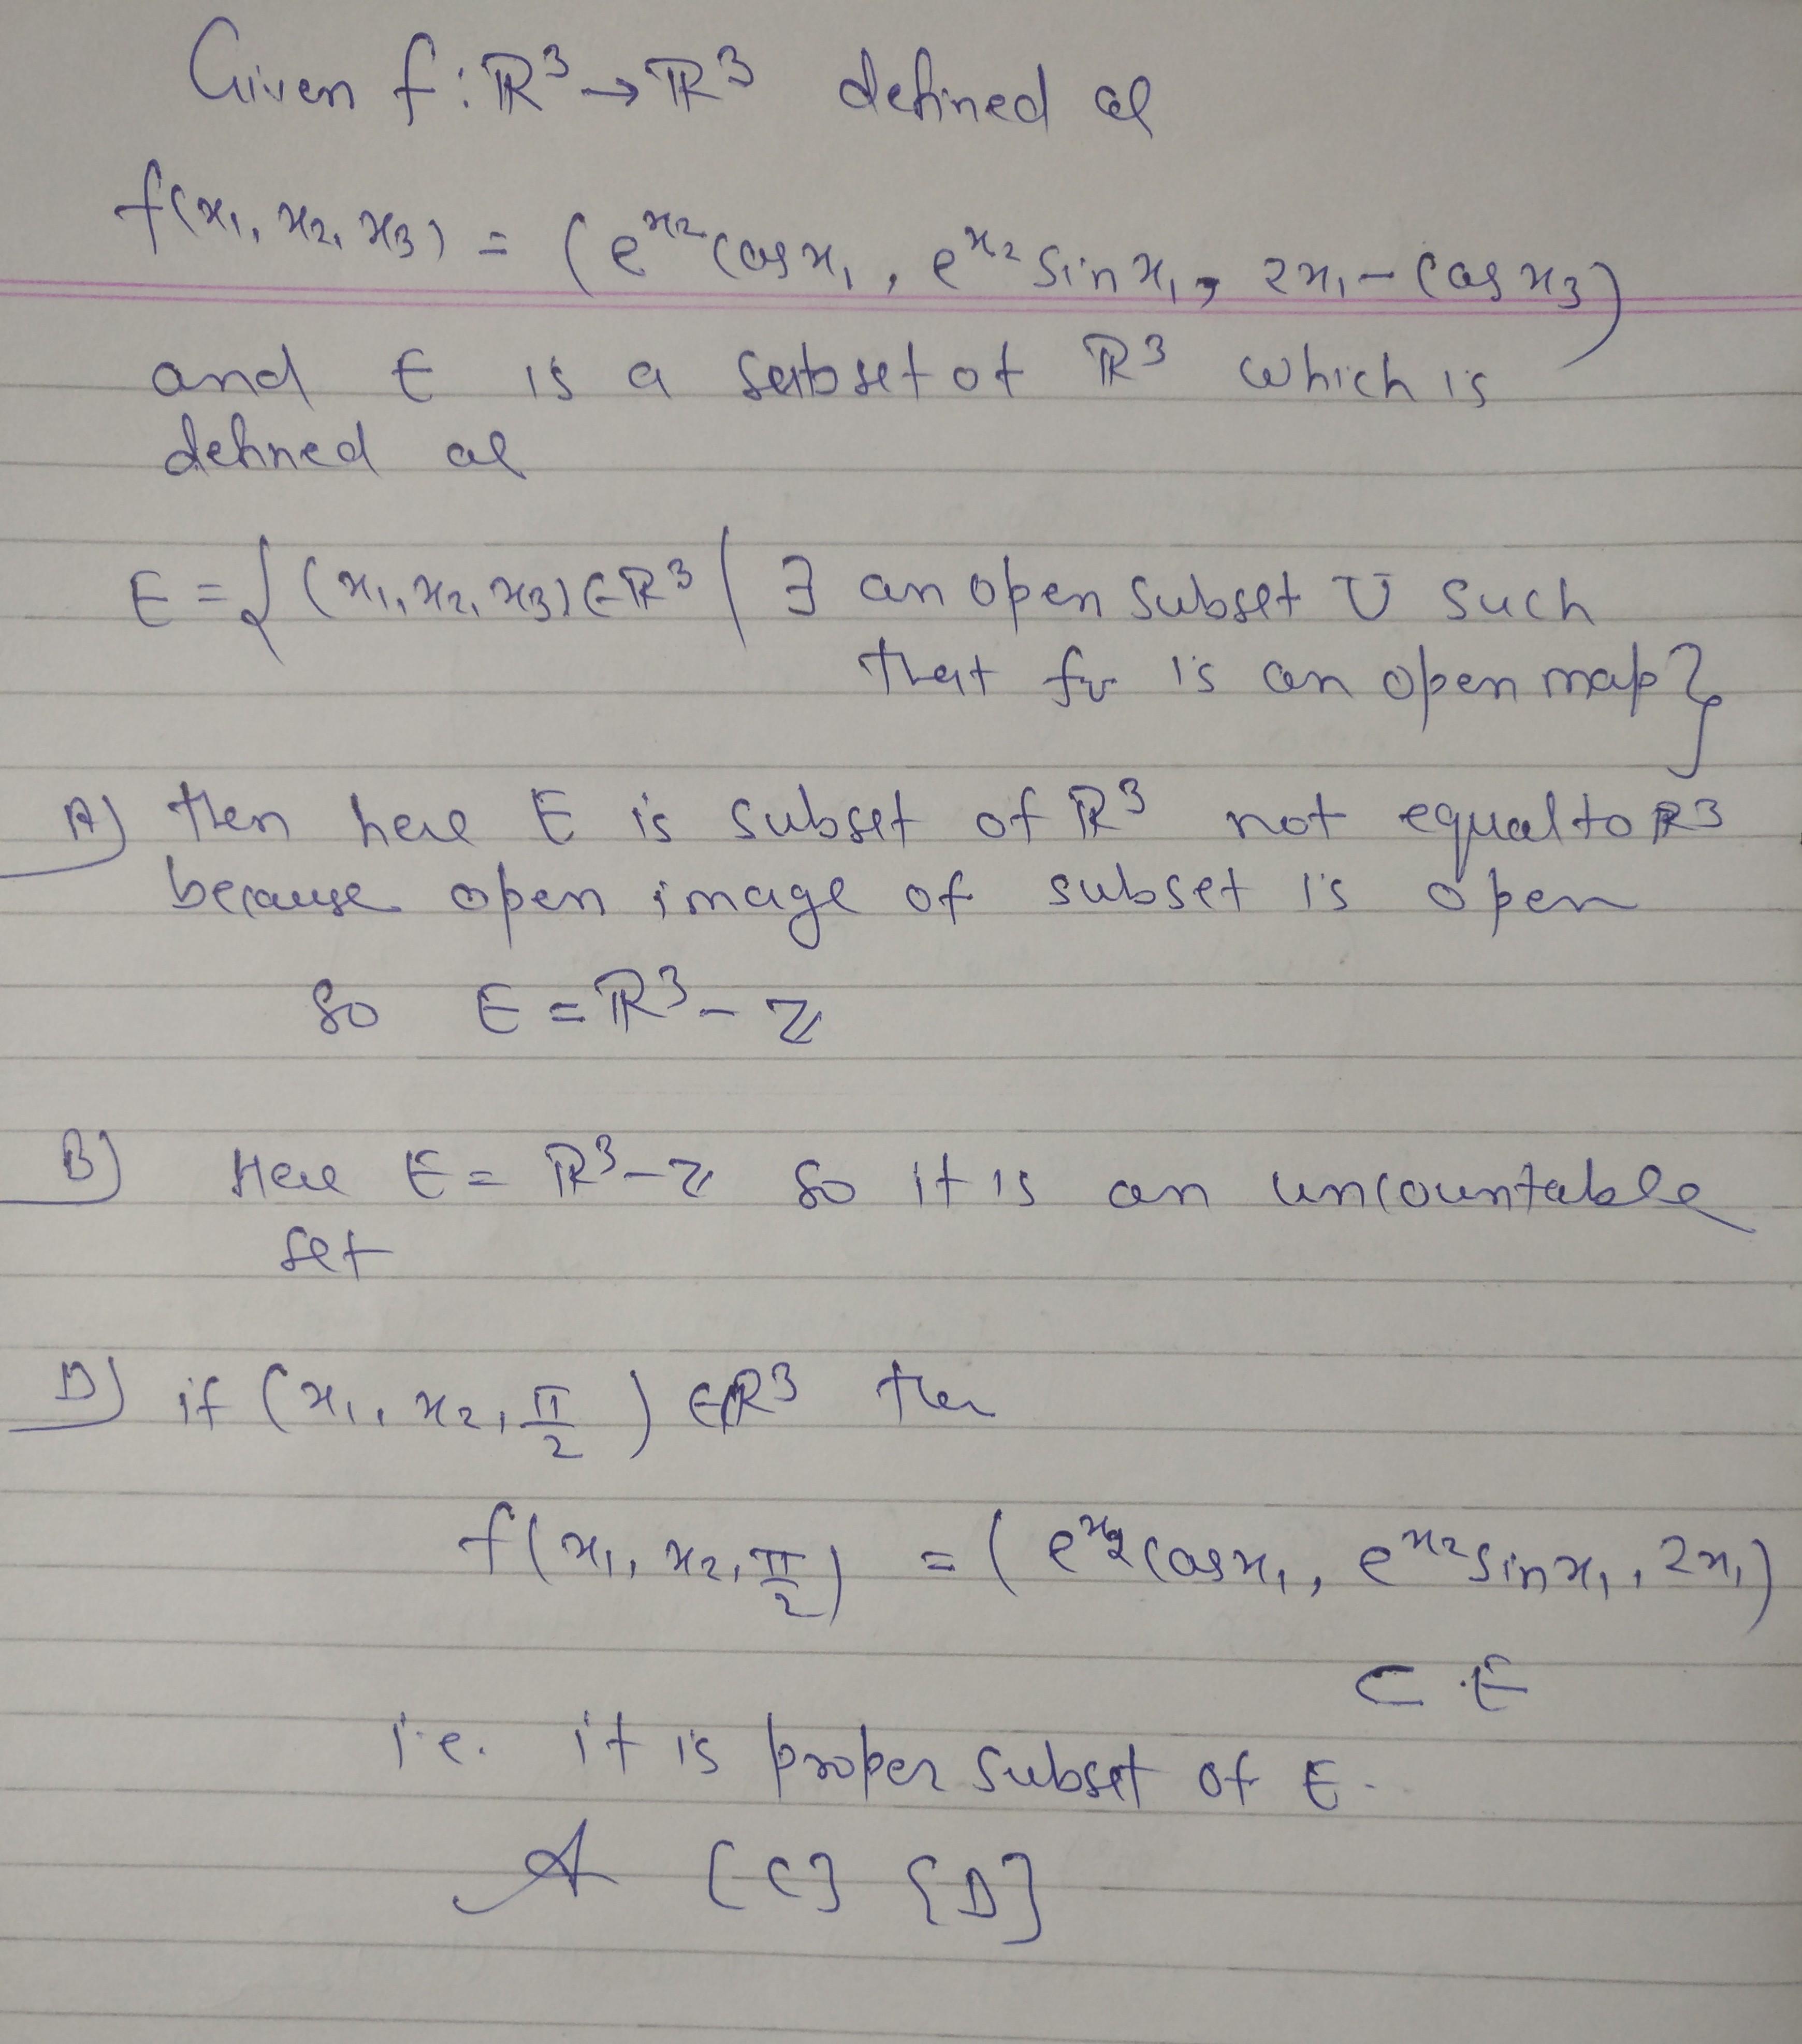 Given f: ℝ³ → ℝ³ defined as
f(x₁, x₂, x₃) = (e^x₂ cos x₁, e^x₂ sin x₁, 2x₁ - cos x₃)
and E is a subset of ℝ³ which is
defined as
E = { (x₁, x₂, x₃) ∈ ℝ³ | ∃ an open subset U such
that f_U is an open map}
A) then here E is subset of ℝ³ not equal to ℝ³
because open image of subset is open
So E = ℝ³ - ℤ
B) Here E = ℝ³ - ℤ So it is an uncountable
set
D) if (x₁, x₂, π/2) ∈ ℝ³ then
f(x₁, x₂, π/2) = (e^x₂ cos x₁, e^x₂ sin x₁, 2x₁)
⊂ E
i.e. it is proper subset of E.
A [C] {D}